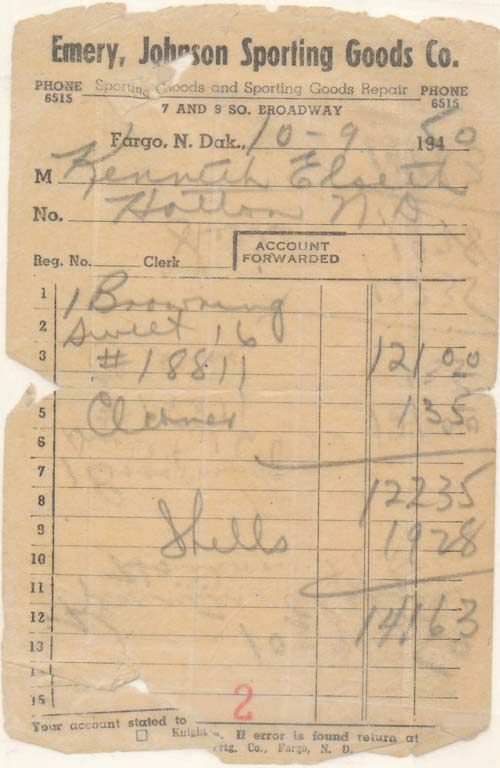 Emery, Johnson Sporting Goods Co.
PHONE 6515 Sporting Goods and Sporting Goods Repair PHONE 6515
7 AND 9 SO. BROADWAY
Fargo, N. Dak., 10-9 1940 50
M Kenneth Elseth
No. Hatton N.D.
Reg. No. Clerk ACCOUNT FORWARDED
1 1 Browning
2 Sweet 16
3 # 18811 121 00
5 Cleaner 1 35
6
7
8 122 35
9 Shells 19 28
10
11
12 141 63
13
15 2
Your account stated to If error is found return at
Knight Co., Fargo, N. D.